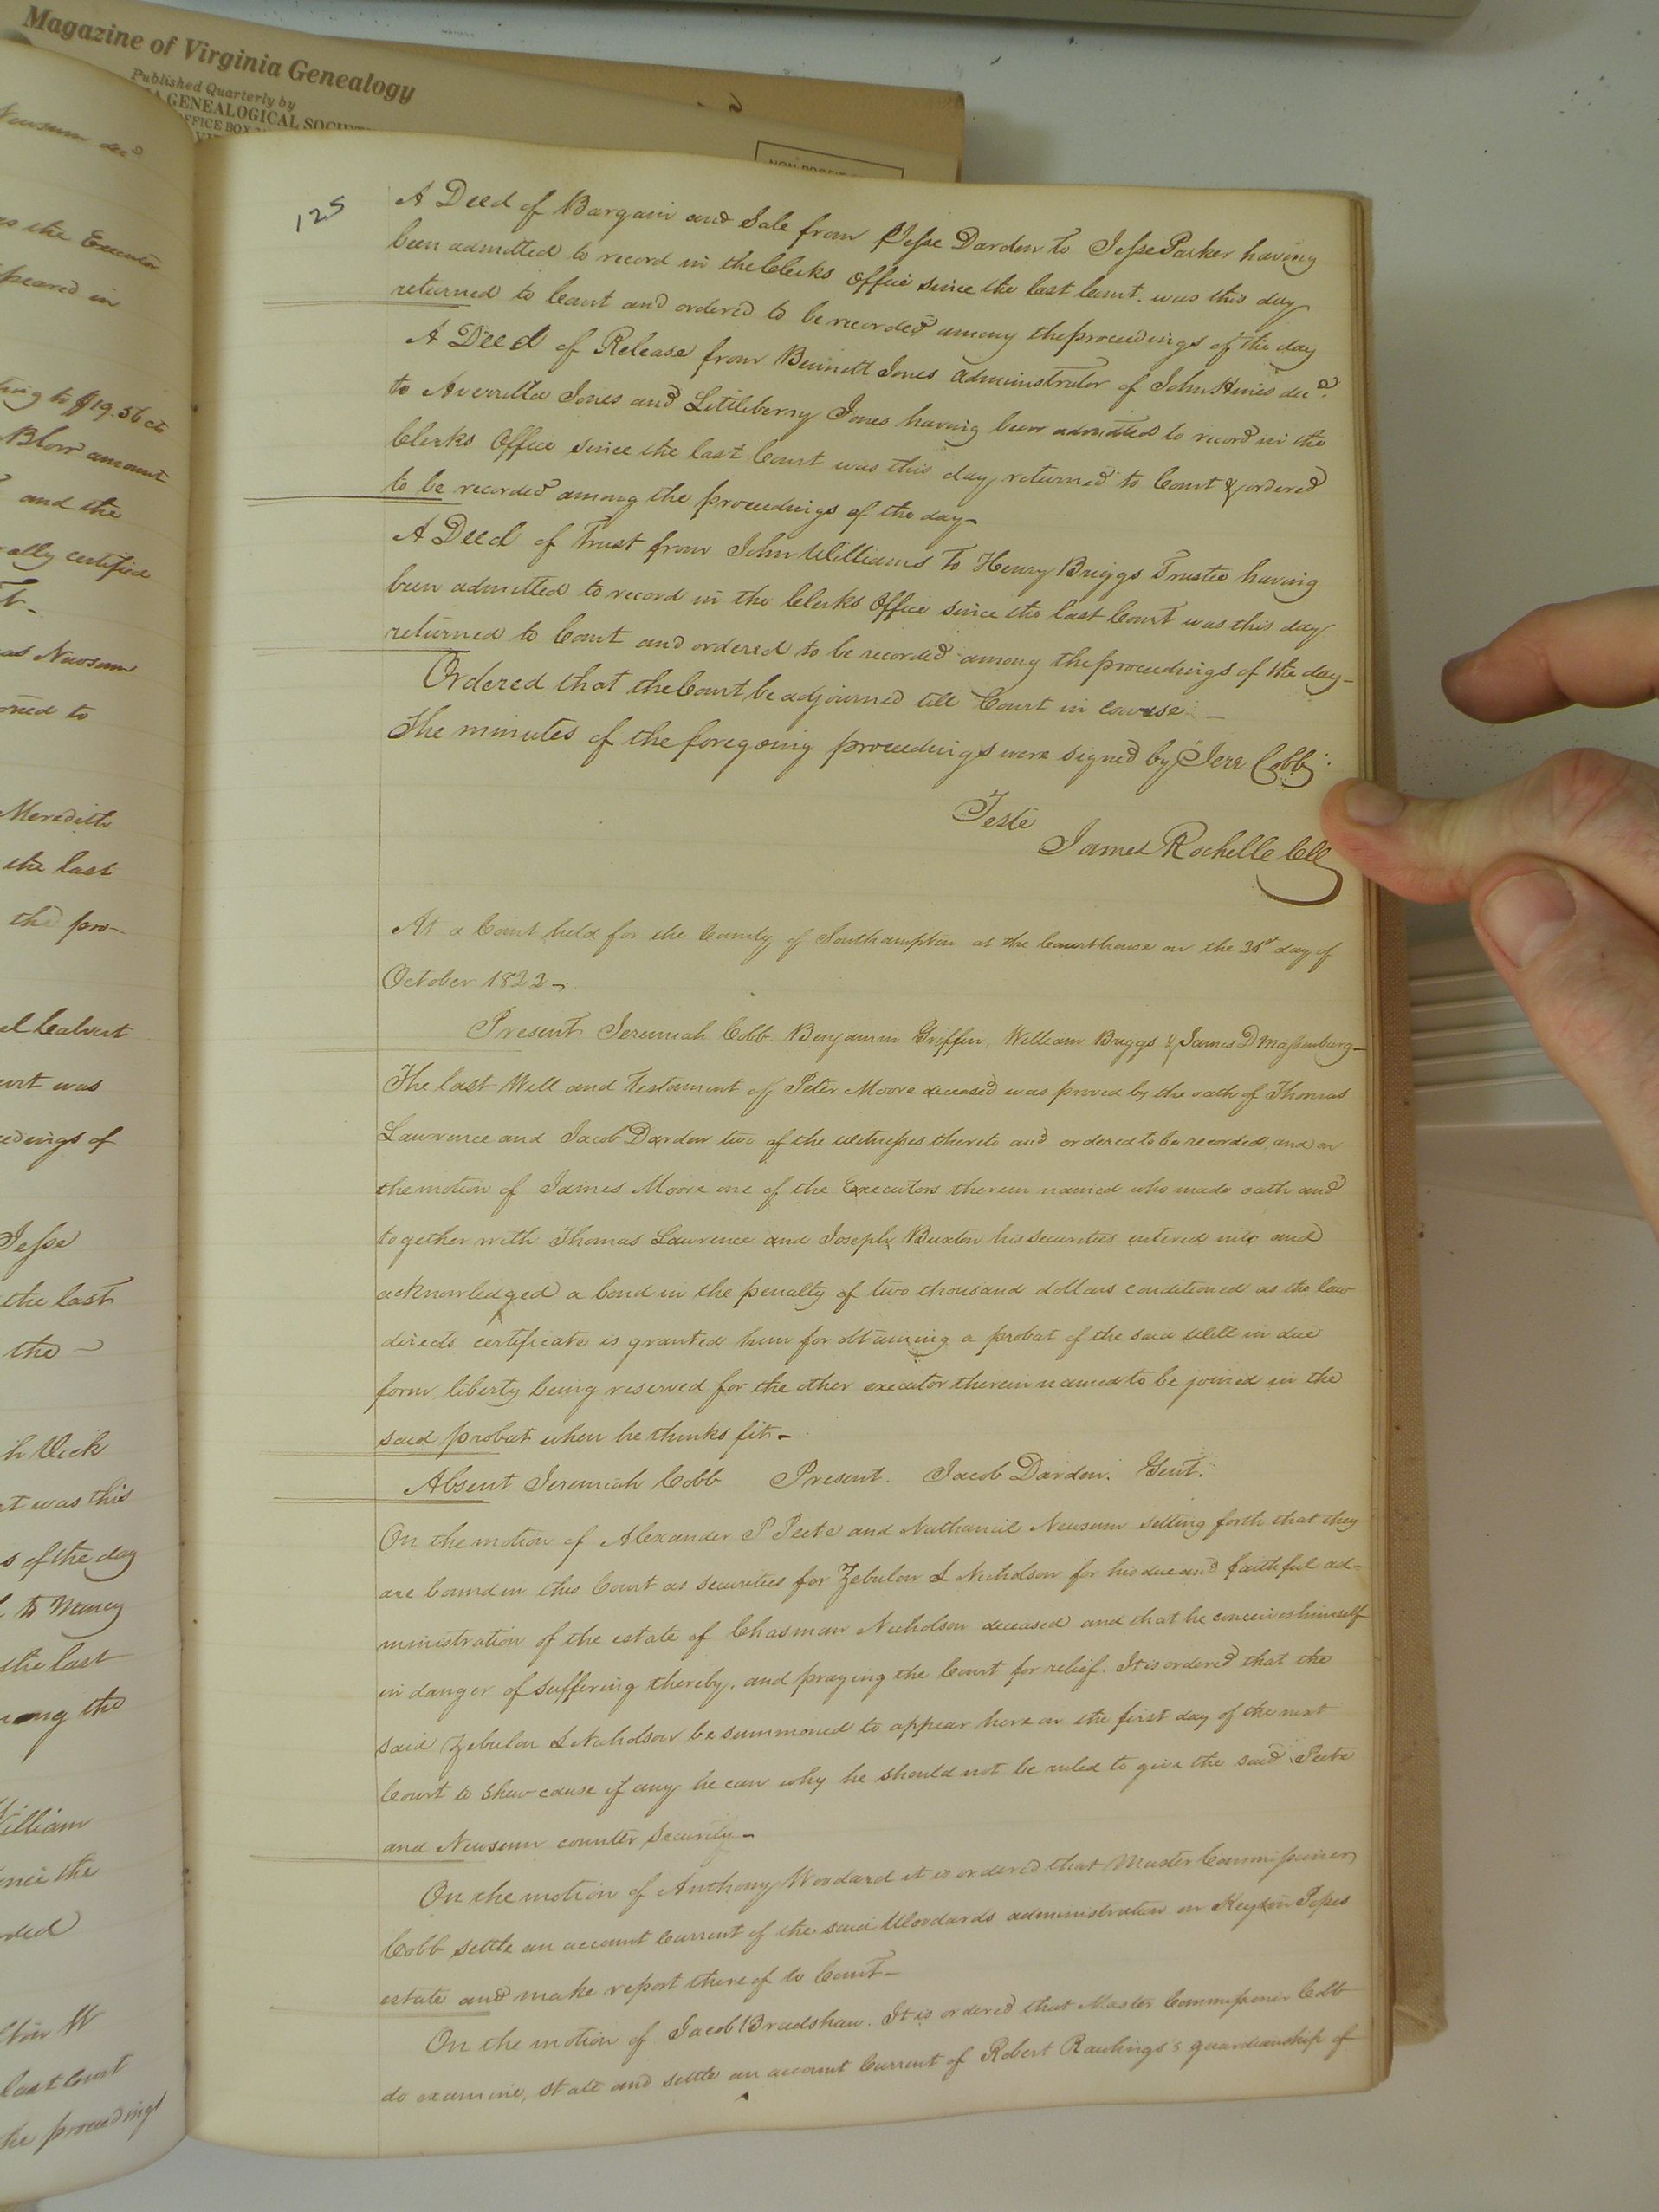 Magazine of Virginia Genealogy
Published Quarterly by
GENEALOGICAL SOCIET
FFICE BOX
Newsum decd
as the Executor
peared in
ting to $19.56 cts
Blow amount
and the
ally certified
as Newsum
oned to
Meredith
the last
the pro-
el Calvert
urt was
eedings of
Jesse
the last
the -
h Vick
at was this
s of the day
to Nancy
the last
mong the
William
since the
rded
last Court
the proceedings
125
A Deed of Bargain and Sale from Jesse Darden to Jesse Parker having
been admitted to record in the Clerks Office since the last Court. was this day
returned to Court and ordered to be recorded among the proceedings of the day
A Deed of Release from Bennett Jones administrator of John Hines decd.
to Averrilla Jones and Littleberry Jones having been admitted to record in the
Clerks Office since the last Court was this day returned to Court & ordered
to be recorded among the proceedings of the day-
A Deed of Trust from John Williams To Henry Briggs Trustee having
been admitted to record in the Clerks Office since the last Court was this day
returned to Court and ordered to be recorded among the proceedings of the day-
Ordered that the Court be adjourned till Court in course. -
The minutes of the foregoing proceedings were signed by Jere Cobb:
Teste
James Rochelle Clk
At a Court held for the County of Southampton at the Courthouse on the 21st day of
October 1822-
Present Jeremiah Cobb Benjamin Griffin, William Briggs & James D Massenburg-
The last Will and Testament of Peter Moore deceased was proved by the oath of Thomas
Lawrence and Jacob Darden two of the witnesses thereto and ordered to be recorded, and on
the motion of James Moore one of the Executors therein named who made oath and
together with Thomas Lawrence and Joseph Buxton his securities entered into and
acknowledged a bond in the penalty of two thousand dollars conditioned as the law
directs certificate is granted him for obtaining a probat of the said Will in due
form, liberty being reserved for the other executor therein named to be joined in the
said probat when he thinks fit-
Absent Jeremiah Cobb Present. Jacob Darden. Gent.
On the motion of Alexander P Peete and Nathaniel Newsum setting forth that they
are bound in this Court as securities for Zebulon L Nicholson for his due and faithful ad=
ministration of the estate of Chasman Nicholson deceased and that he conceives himself
in danger of suffering thereby, and praying the Court for relief. It is ordered that the
said Zebulon L Nicholson be summoned to appear here on the first day of the next
Court to shew cause if any he can why he should not be ruled to give the said Peete
and Newsum counter security-
On the motion of Anthony Woodard it is ordered that Master Commissioner
Cobb settle an account Current of the said Woodards administration on Popes
estate and make report thereof to Court-
On the motion of Jacob Bradshaw. It is ordered that Master Commissioner Cobb
do examine, state and settle an account Current of Robert Rawlings's guardianship of